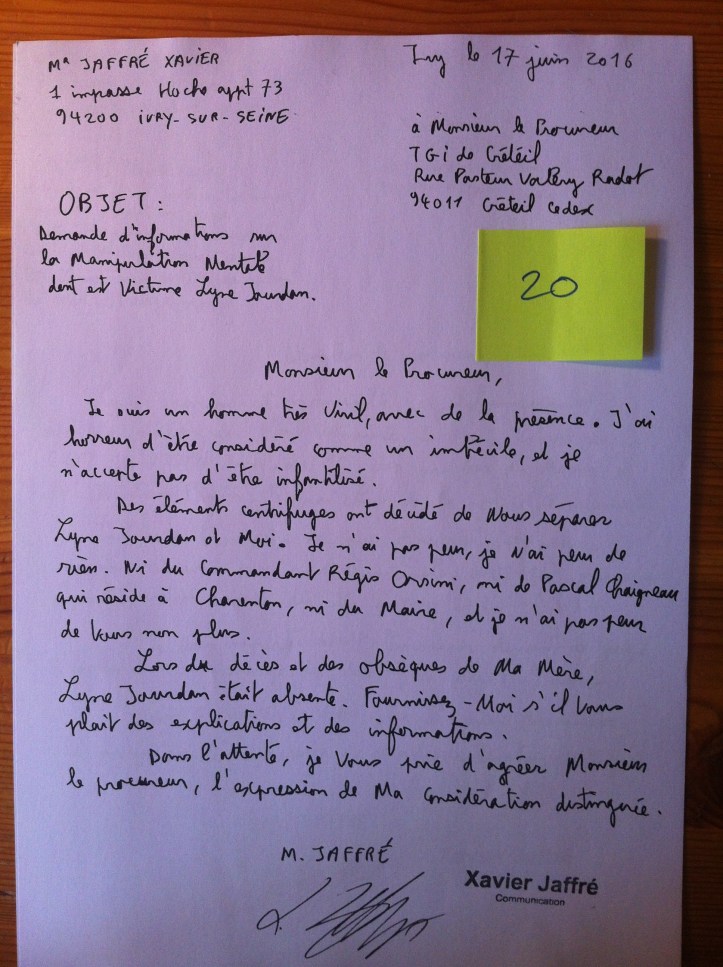 Mr JAFFRÉ XAVIER
1 impasse Hoche appt 73
94200 IVRY-SUR-SEINE
Ivry le 17 juin 2016
à Monsieur le Procureur
TGI de Créteil
Rue Pasteur Valéry Radot
94011 Créteil cedex
OBJET :
Demande d'informations sur
la Manipulation Mentale
dont est Victime Lyne Jourdan.
20
Monsieur le Procureur,
Je suis un homme très viril, avec de la présence. J'ai
horreur d'être considéré comme un imbécile, et je
n'accepte pas d'être infantilisé.
Des éléments centrifuges ont décidé de Nous séparer
Lyne Jourdan et Moi. Je n'ai pas peur, je N'ai peur de
rien. Ni du Commandant Régis Orsini, ni de Pascal Chaigneau
qui réside à Charenton, ni du Maire, et je n'ai pas peur
de Vous non plus.
Lors du décès et des obsèques de Ma Mère,
Lyne Jourdan était absente. Fournissez-Moi s'il Vous
plait des explications et des informations.
Dans l'attente, je Vous prie d'agréer Monsieur
le procureur, l'expression de Ma Considération distinguée.
M. JAFFRÉ
Xavier Jaffré
Communication